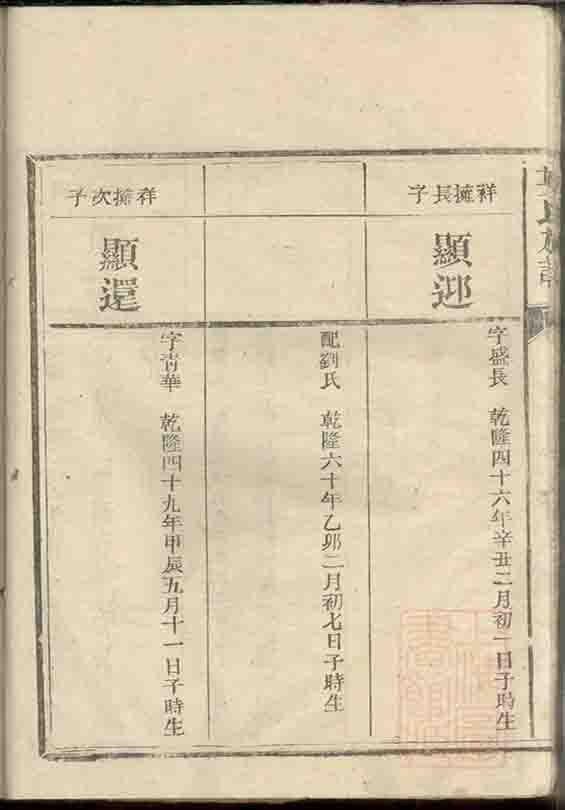 氏族譜
祥擁長子
顯迎
字盛長 乾隆四十六年辛丑二月初一日子時生
配劉氏 乾隆六十年乙卯二月初七日子時生
祥擁次子
顯還
字青華 乾隆四十九年甲辰五月十一日子時生